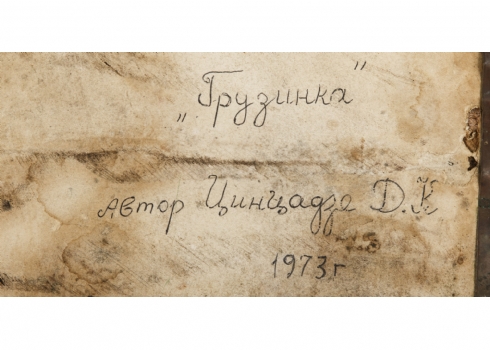 „Грузинка"
Автор Цинцадзе Д.К
1973г